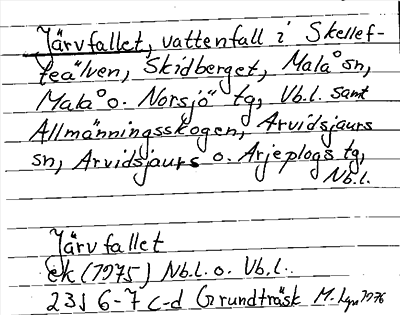 Järvfallet, vattenfall i Skellef-
teälven, Skidberget, Malå sn,
Malå o. Norsjö tg, Vb.l. samt
Allmänningsskogen, Arvidsjaurs
sn, Arvidsjaurs o. Arjeplogs tg,
Nb.l.
Järvfallet
ek (1975) Nb.l. o. Vb.l.
23J 6-7 c-d Grundträsk M. 1976